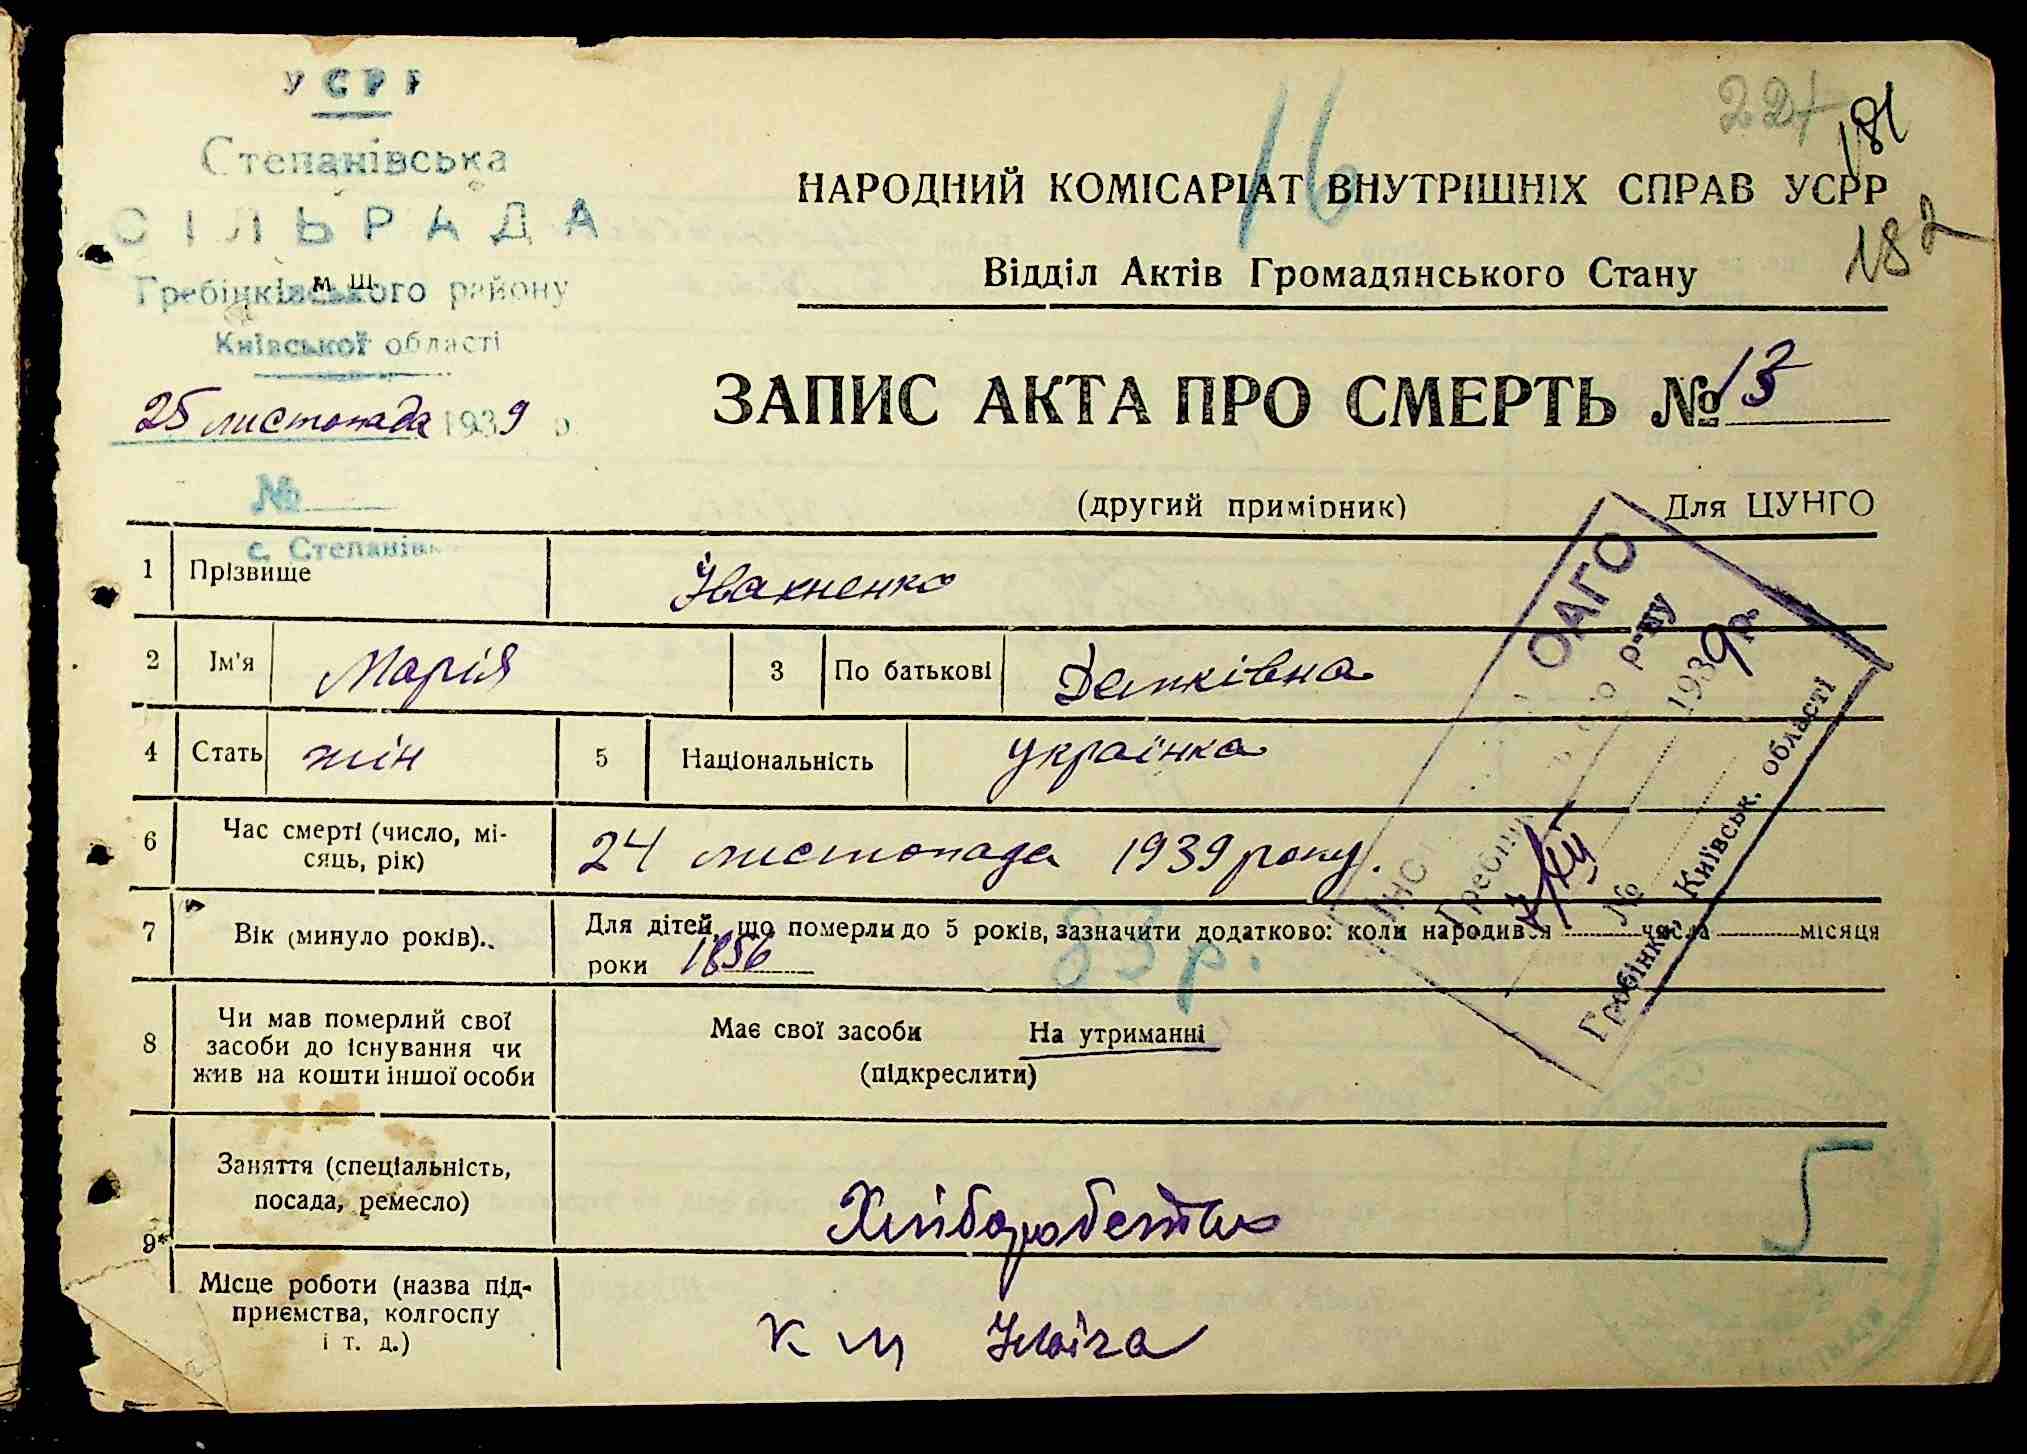 УСРР
Степанівська
СІЛЬРАДА
м. ш.
Гребінківського району
Київської області
25 листопада 1939 р.
№
с. Степанівка
16
224
181
182
НАРОДНИЙ КОМІСАРІАТ ВНУТРІШНІХ СПРАВ УСРР
Відділ Актів Громадянського Стану
ЗАПИС АКТА ПРО СМЕРТЬ № 13
(другий примірник) Для ЦУНГО
ОАГО
Гребінк р-ну
1939 р.
№
Гребінка, Київськ. області
1 Прізвище Івахненко
2 Ім'я Марія 3 По батькові Демківна
4 Стать жін 5 Національність українка
6 Час смерті (число, мі-
сяць, рік) 24 листопада 1939 року.
7 Вік (минуло років).. Для дітей, що померли до 5 років, зазначити додатково: коли народився числа місяця
роки 1856 83 р.
8 Чи мав померлий свої
засоби до існування чи
жив на кошти іншої особи
Має свої засоби На утриманні
(підкреслити)
9* Заняття (спеціальність,
посада, ремесло) Хлібороб
5
Місце роботи (назва під-
приємства, колгоспу
і т. д.) К Ілліча